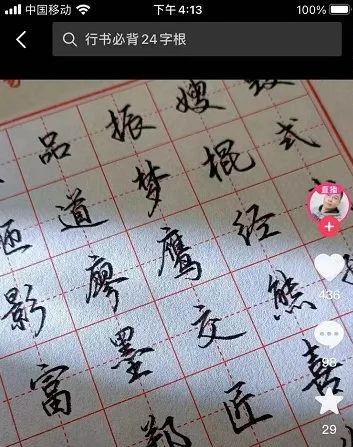 中国移动
下午4:13
100%
行书必背24字根
品 振 嫂
道 梦 棍 式
影 廖 鹰 经
富 墨 交 熊
匠 喜
直播
436
98
29